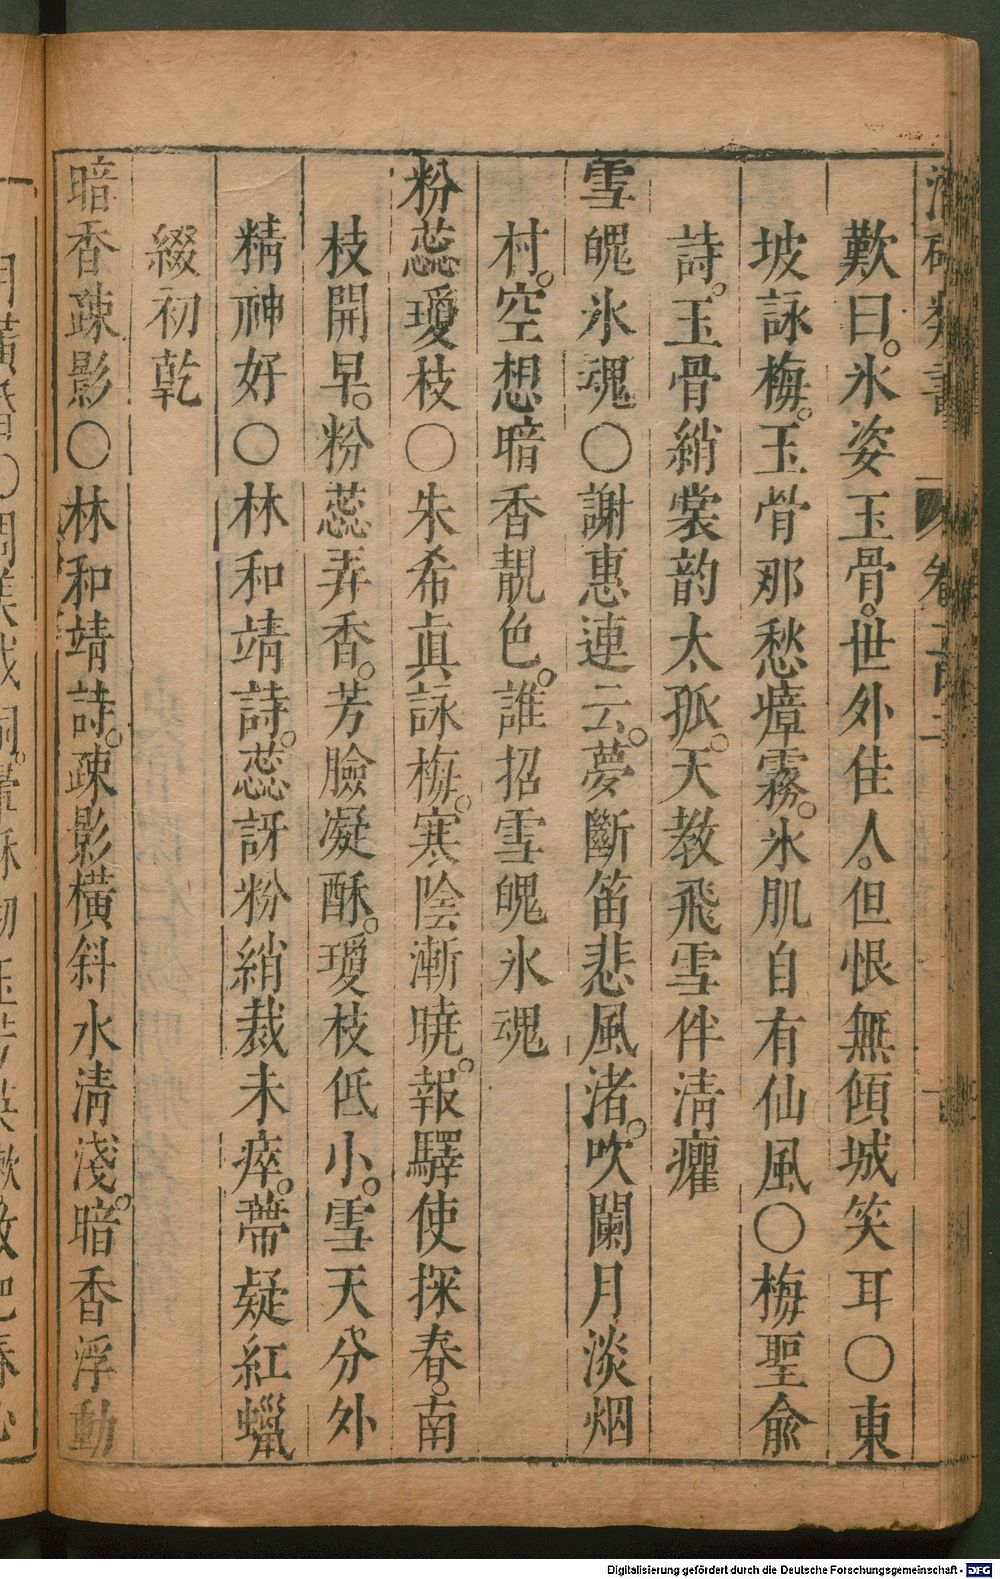 歎曰。氷姿玉骨。世外佳人。但恨無傾城笑耳〇東
坡詠梅。玉骨那愁瘴霧。氷肌自有仙風〇梅聖俞
詩。玉骨綃裳韵太孤。天教飛雪伴淸癯
雪魄氷魂〇謝惠連云。夢斷笛悲風渚。吹闌月淡烟
村。空想暗香靚色。誰招雪魄氷魂
粉蕊瓊枝〇朱希眞詠梅。寒陰漸曉。報驛使探春。南
枝開早。粉蕊弄香。芳臉凝酥。瓊枝低小。雪天分外
精神好〇林和靖詩。蕊訝粉綃裁未瘁。蔕疑紅蠟
綴初乾
暗香疎影〇林和靖詩。疎影橫斜水淸淺。暗香浮動
Digitalisierung gefördert durch die Deutsche Forschungsgemeinschaft - DFG